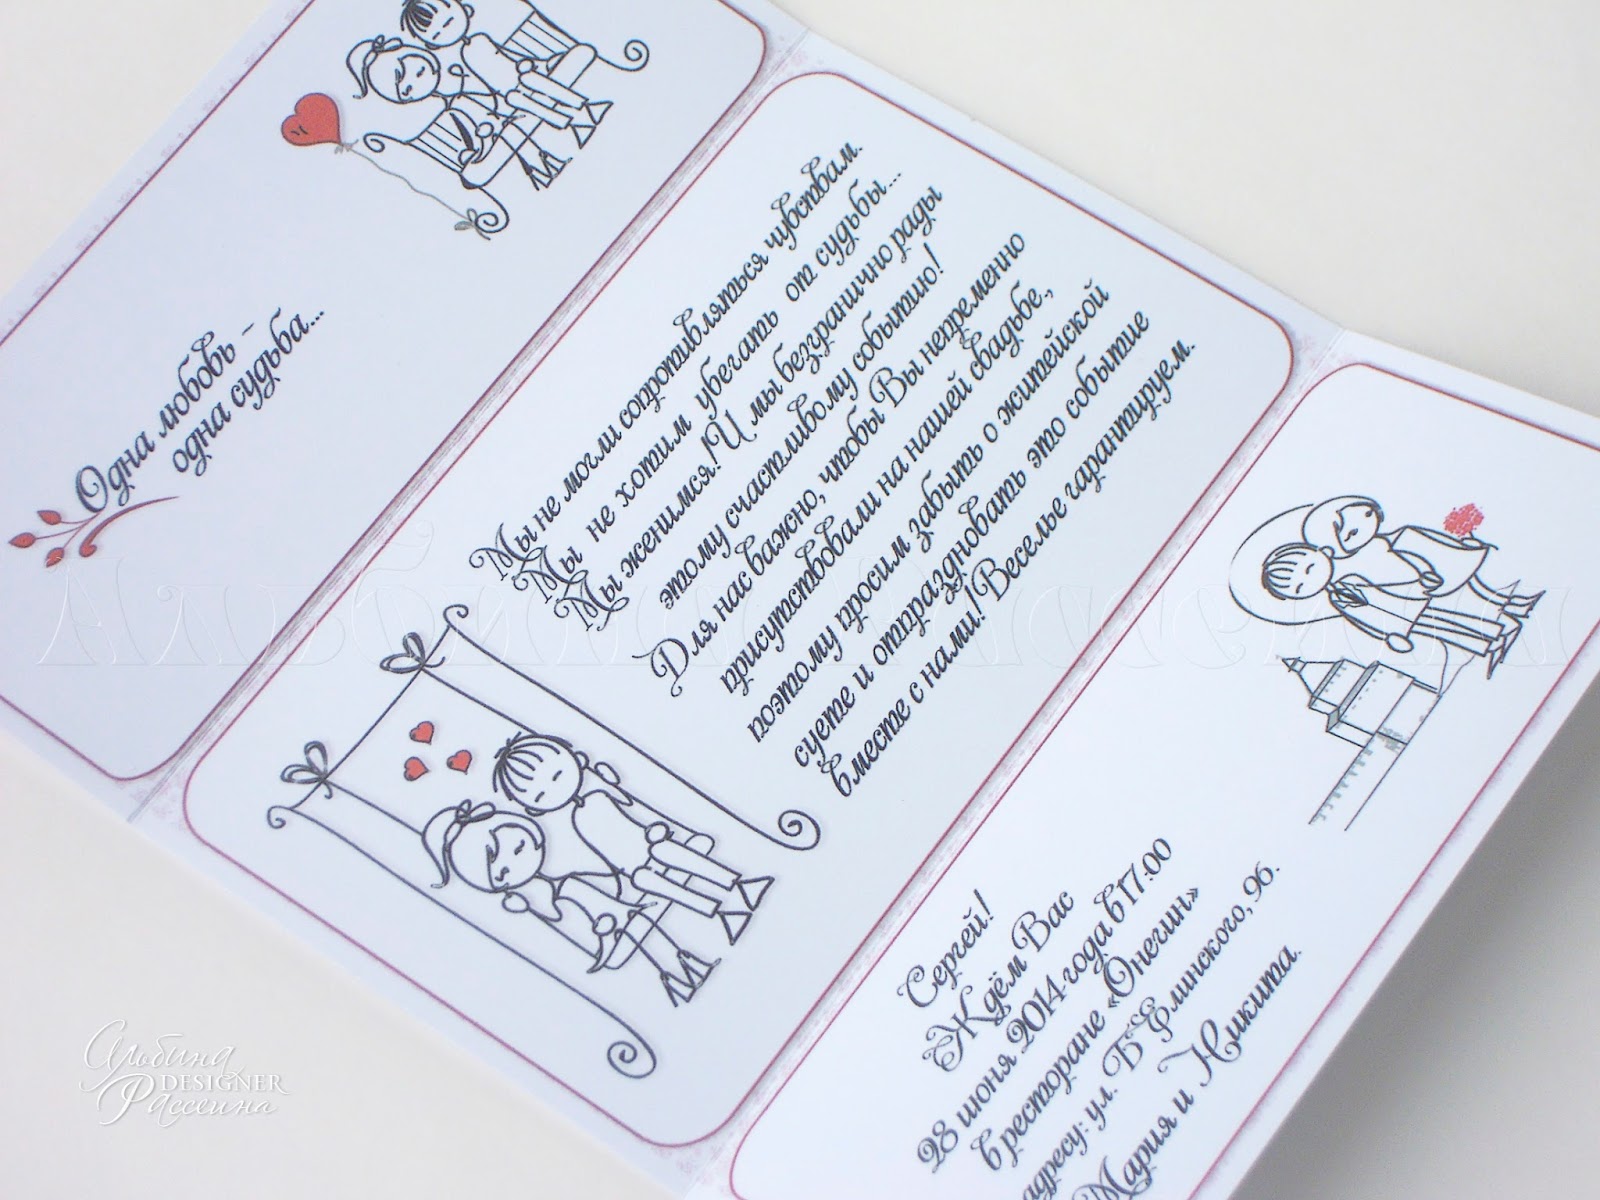 Одна любовь -
одна судьба...
Мы не могли сопротивляться чувствам.
Мы не хотим убегать от судьбы...
Мы женимся! И мы безгранично рады
этому счастливому событию!
Для нас важно, чтобы Вы непременно
присутствовали на нашей свадьбе,
поэтому просим забыть о житейской
суете и отпраздновать это событие
вместе с нами! Веселье гарантируем.
Сергей!
Ждём Вас
28 июня 2014 года в 17:00
в ресторане «Онегин»
адресу: ул. Б Елминского, 96.
Мария и Никита.
Альбина Рассеина
Альбина
DESIGNER
Рассеина